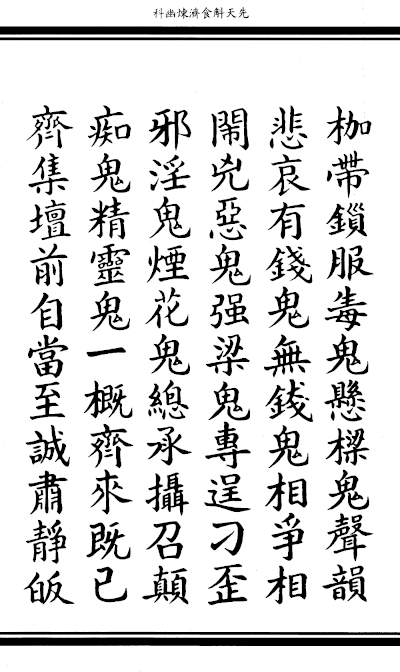 科幽煉濟食斛天先
枷帶鎖服毒鬼懸樑鬼聲韻
悲哀有錢鬼無銭鬼相爭相
鬧兇惡鬼强梁鬼專逞刁歪
邪淫鬼煙花鬼總承攝召顛
痴鬼精靈鬼一概齊來既已
齊集壇前自當至誠肅靜皈